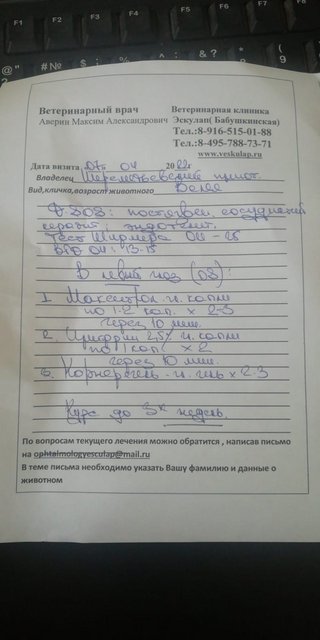 Ветеринарный врач
Аверин Максим Александрович
Ветеринарная клиника
Эскулап( Бабушкинская)
Тел.:8-916-515-01-88
Тел.:8-495-788-73-71
www.veskulap.ru
Дата визита 07. 04 2022г
Владелец Шереметьевский приют.
Вид,кличка,возраст животного Белка
OS: постязвен. сосудистый
кератит,
Тест Ширмера OU -
ВГД OU: 13-15
В левый глаз (OS):
1. Макситрол гл. капли
по 1-2 кап. х 2-3
через 10 мин.
2. 2,5% гл. капли
по 1 кап х 2
через 10 мин.
3. Корнерегель гл. гель х 2-3
Курс до 3х недель.
По вопросам текущего лечения можно обратится , написав письмо
на ophtalmologyesculap@mail.ru
В теме письма необходимо указать Вашу фамилию и данные о
животном